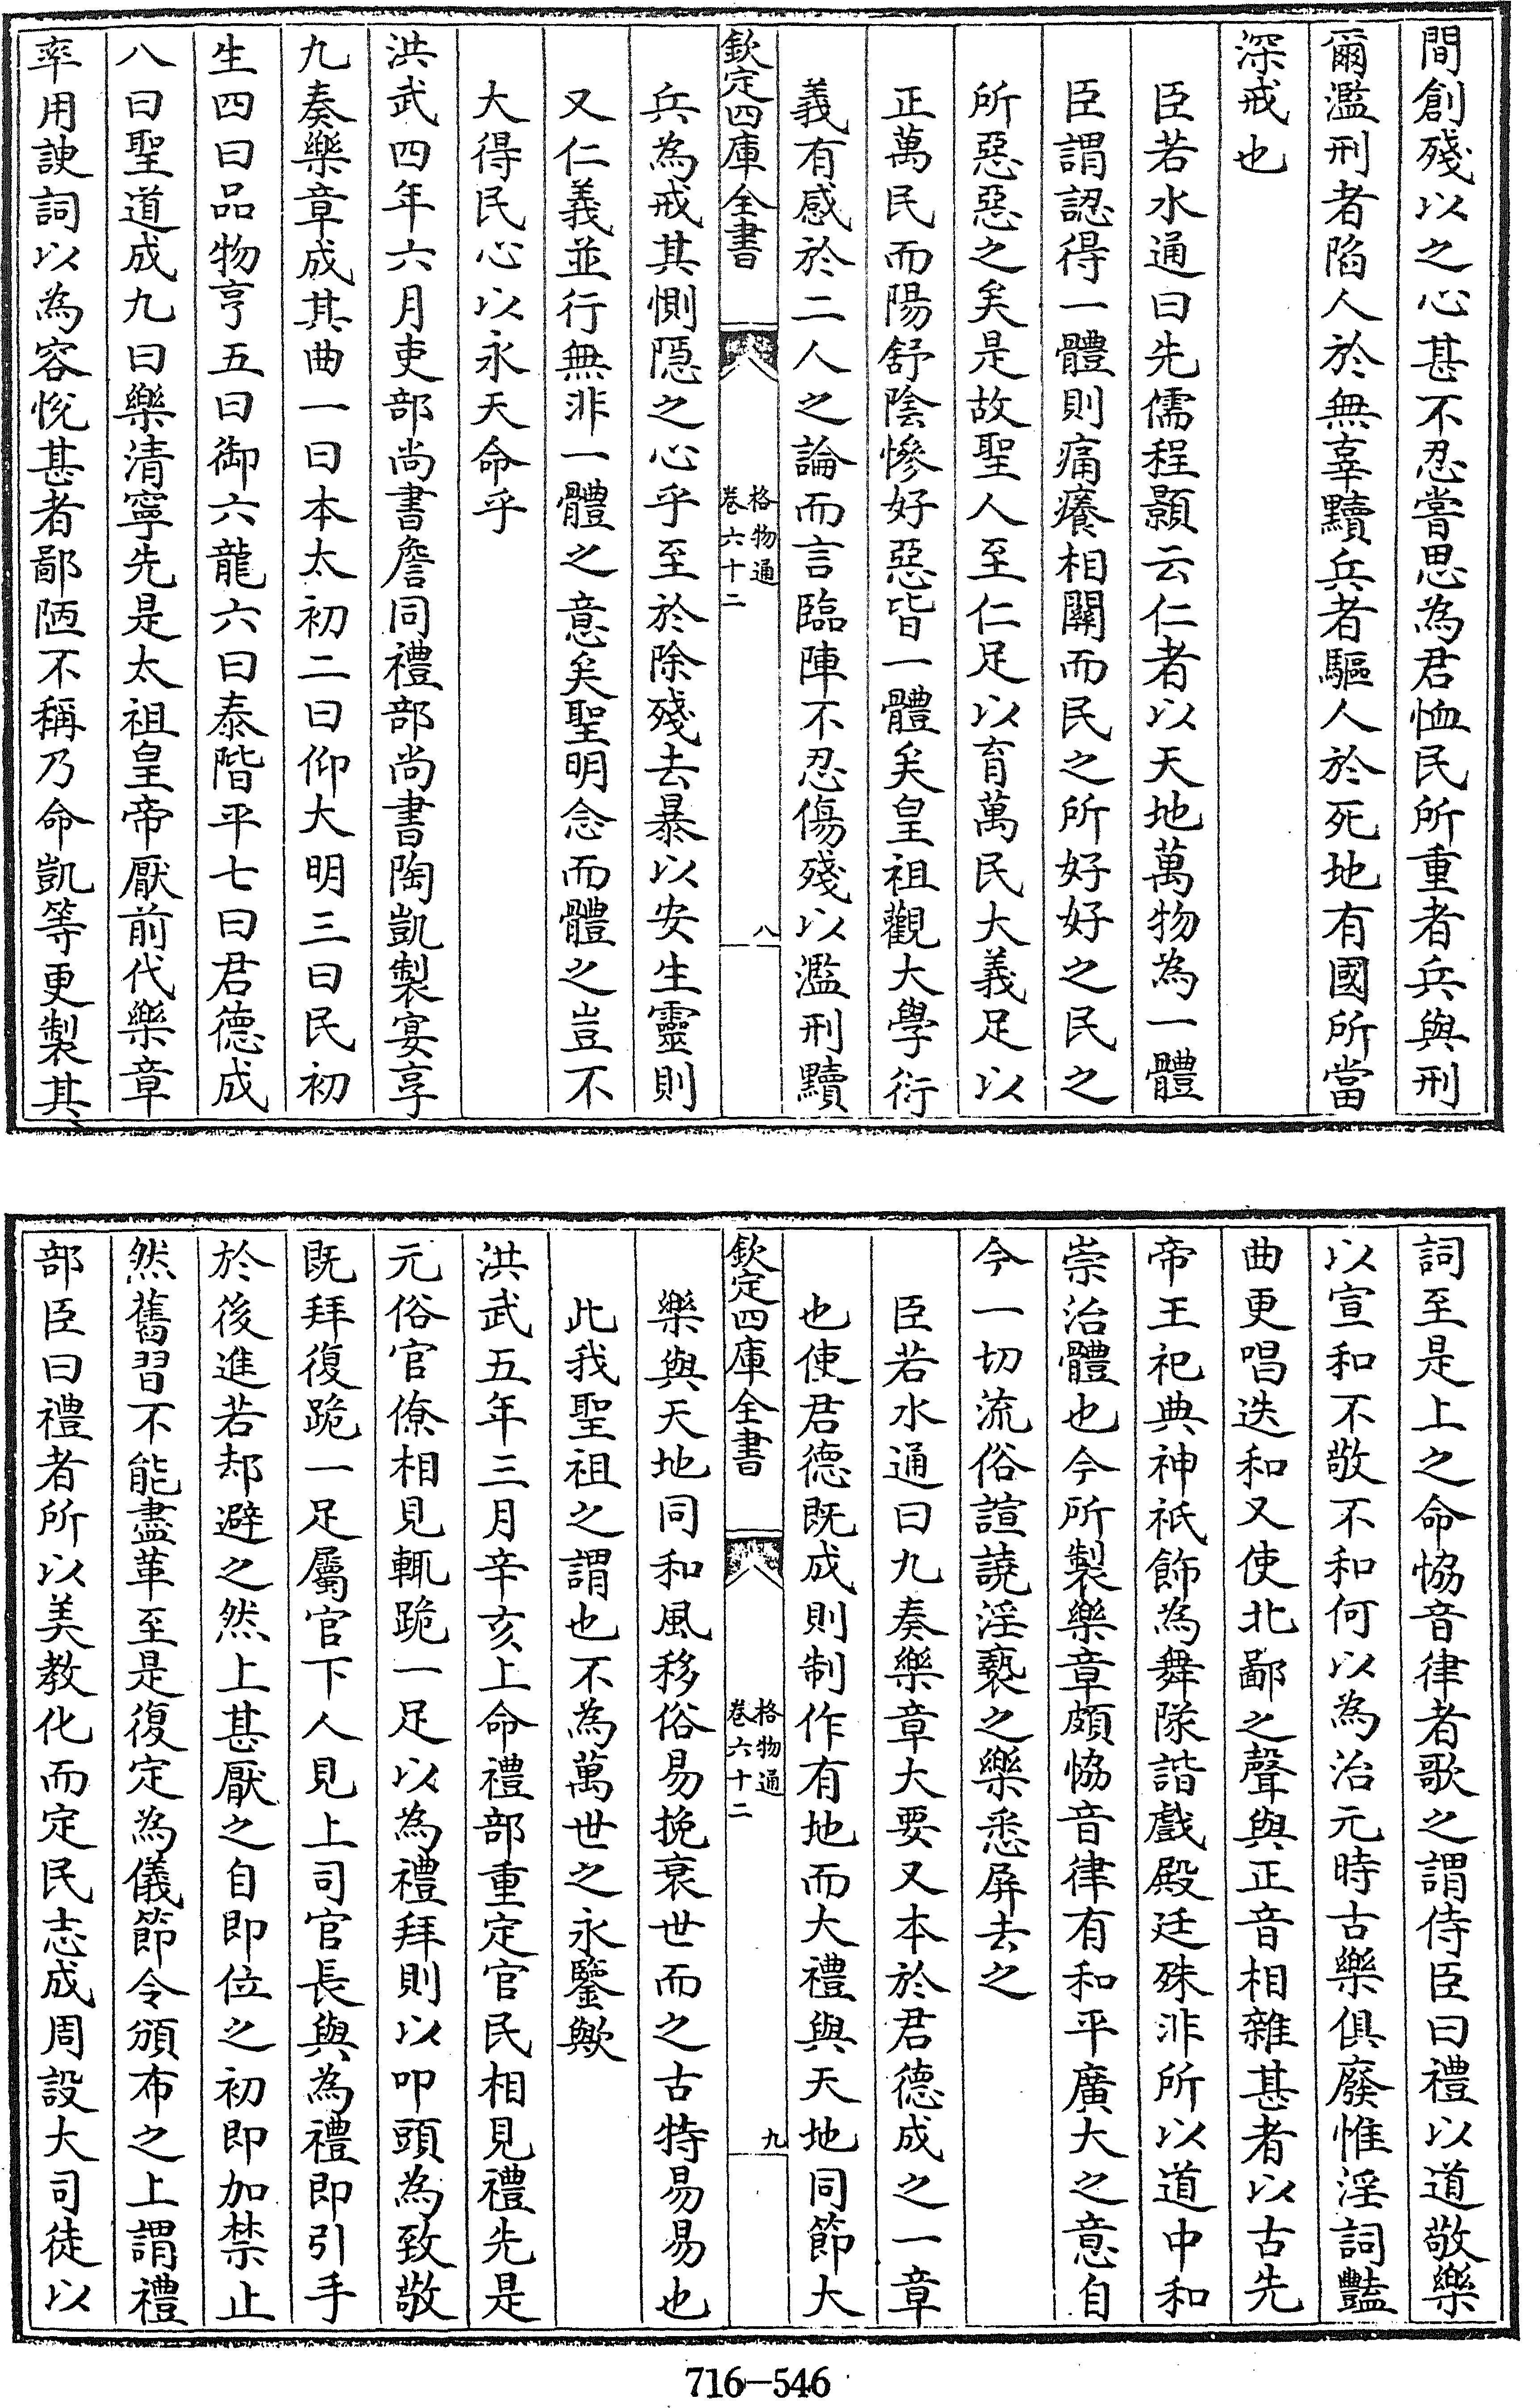 間創殘以之心甚不忍嘗思為君恤民所重者兵與刑
爾濫刑者陷人於無辜黷兵者驅人於死地有國所當
深戒也
臣若水通曰先儒程顥云仁者以天地萬物為一體
臣謂認得一體則痛癢相關而民之所好好之民之
所惡惡之矣是故聖人至仁足以育萬民大義足以
正萬民而陽舒陰慘好惡皆一體矣皇祖觀大學衍
義有感於二人之論而言臨陣不忍傷殘以濫刑黷
欽定四庫全書
格物通
卷六十二
八
兵為戒其惻隱之心乎至於除殘去暴以安生靈則
又仁義並行無非一體之意矣聖明念而體之豈不
大得民心以永天命乎
洪武四年六月吏部尚書詹同禮部尚書陶凱製宴享
九奏樂章成其曲一曰本太初二曰仰大明三曰民初
生四曰品物亨五曰御六龍六曰泰階平七曰君德成
八曰聖道成九曰樂清寧先是太祖皇帝厭前代樂章
率用諛詞以為容悅甚者鄙陋不稱乃命凱等更製其
詞至是上之命恊音律者歌之謂侍臣曰禮以道敬樂
以宣和不敬不和何以為治元時古樂俱廢惟淫詞豔
曲更唱迭和又使北鄙之聲與正音相雜甚者以古先
帝王祀典神祇飾為舞隊諧戲殿廷殊非所以道中和
崇治體也今所製樂章頗恊音律有和平廣大之意自
今一切流俗諠譊淫褻之樂悉屏去之
臣若水通曰九奏樂章大要又本於君德成之一章
也使君德既成則制作有地而大禮與天地同節大
欽定四庫全書
格物通
卷六十二
九
樂與天地同和風移俗易挽衰世而之古特易易也
此我聖祖之謂也不為萬世之永鑒歟
洪武五年三月辛亥上命禮部重定官民相見禮先是
元俗官僚相見輒跪一足以為禮拜則以叩頭為致敬
既拜復跪一足屬官下人見上司官長與為禮即引手
於後進若却避之然上甚厭之自即位之初即加禁止
然舊習不能盡革至是復定為儀節令頒布之上謂禮
部臣曰禮者所以美教化而定民志成周設大司徒以
716-546